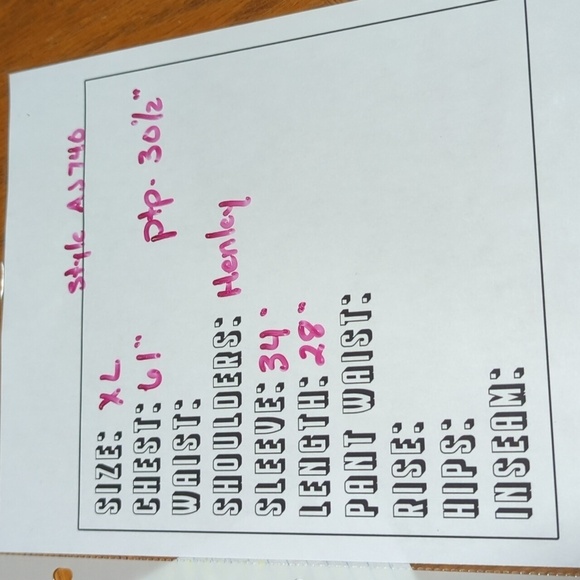 Style AJ740
SIZE: XL
CHEST: 61" ptp. 30 1/2"
WAIST:
SHOULDERS: Henley
SLEEVE: 34"
LENGTH: 28"
PANT WAIST:
RISE:
HIPS:
INSEAM: